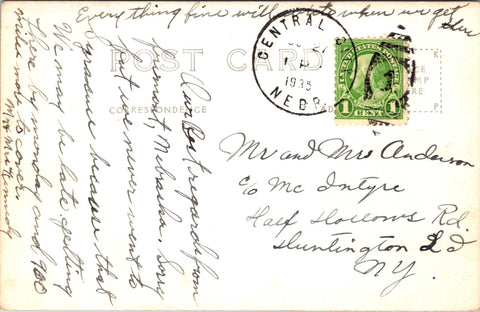 Everything fine will write when we get
there
POST CARD
CORRESPONDENCE
CENTRAL C
1935
NEBR.
1 CENT 1
Our Best regards from
Fremont, Nebraska. Sorry
But we never went to
because that
We may be late getting
There by monday and 900
miles more to cover.
Mr & Mrs Kennedy
Mr and Mrs Anderson
c/o Mc Intyre
Half Hollows Rd.
Huntington L I
N.Y.